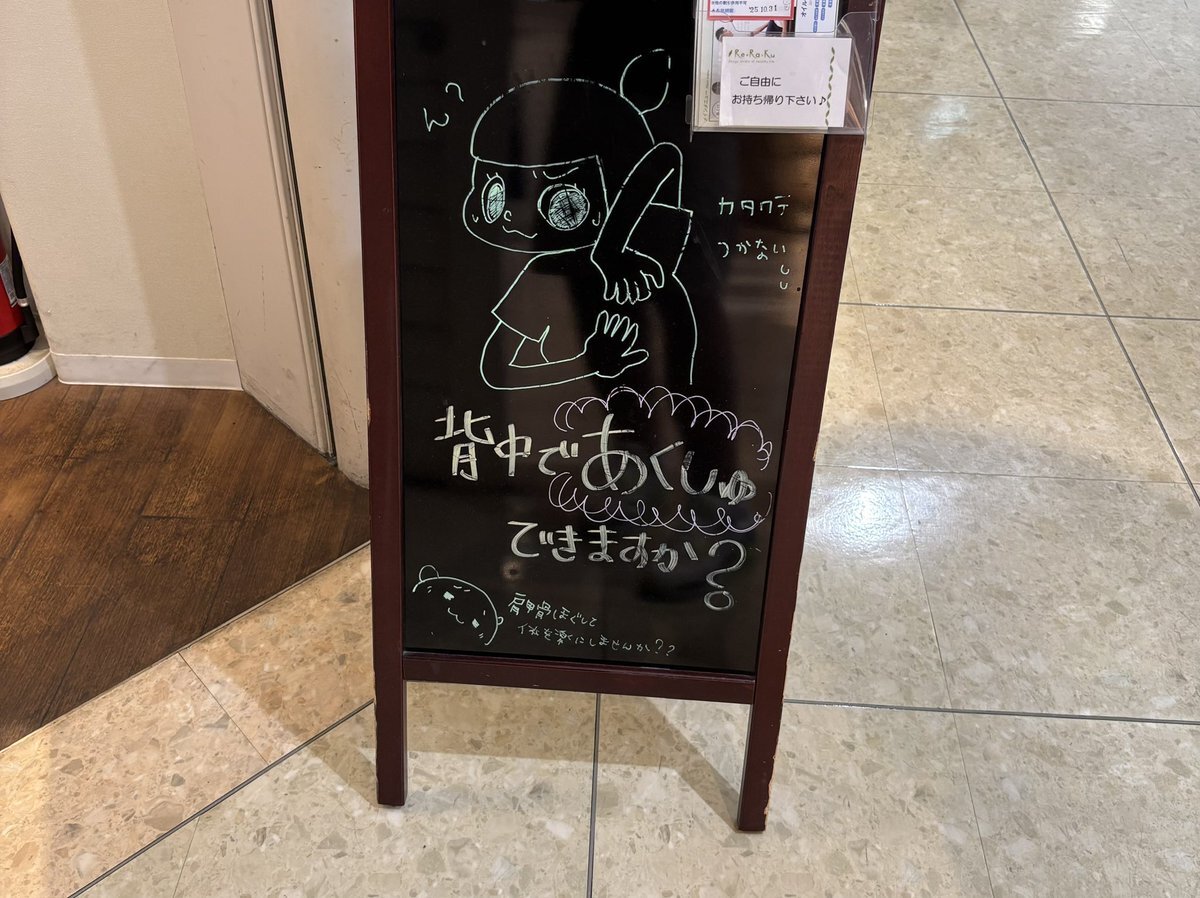 25.10.31
Re.Ra.Ku
ご自由に
お持ち帰り下さい♪
ん?
カタクテ
つかない
背中であくしゅ
できますか?
肩甲骨ほぐして
体を楽にしませんか??